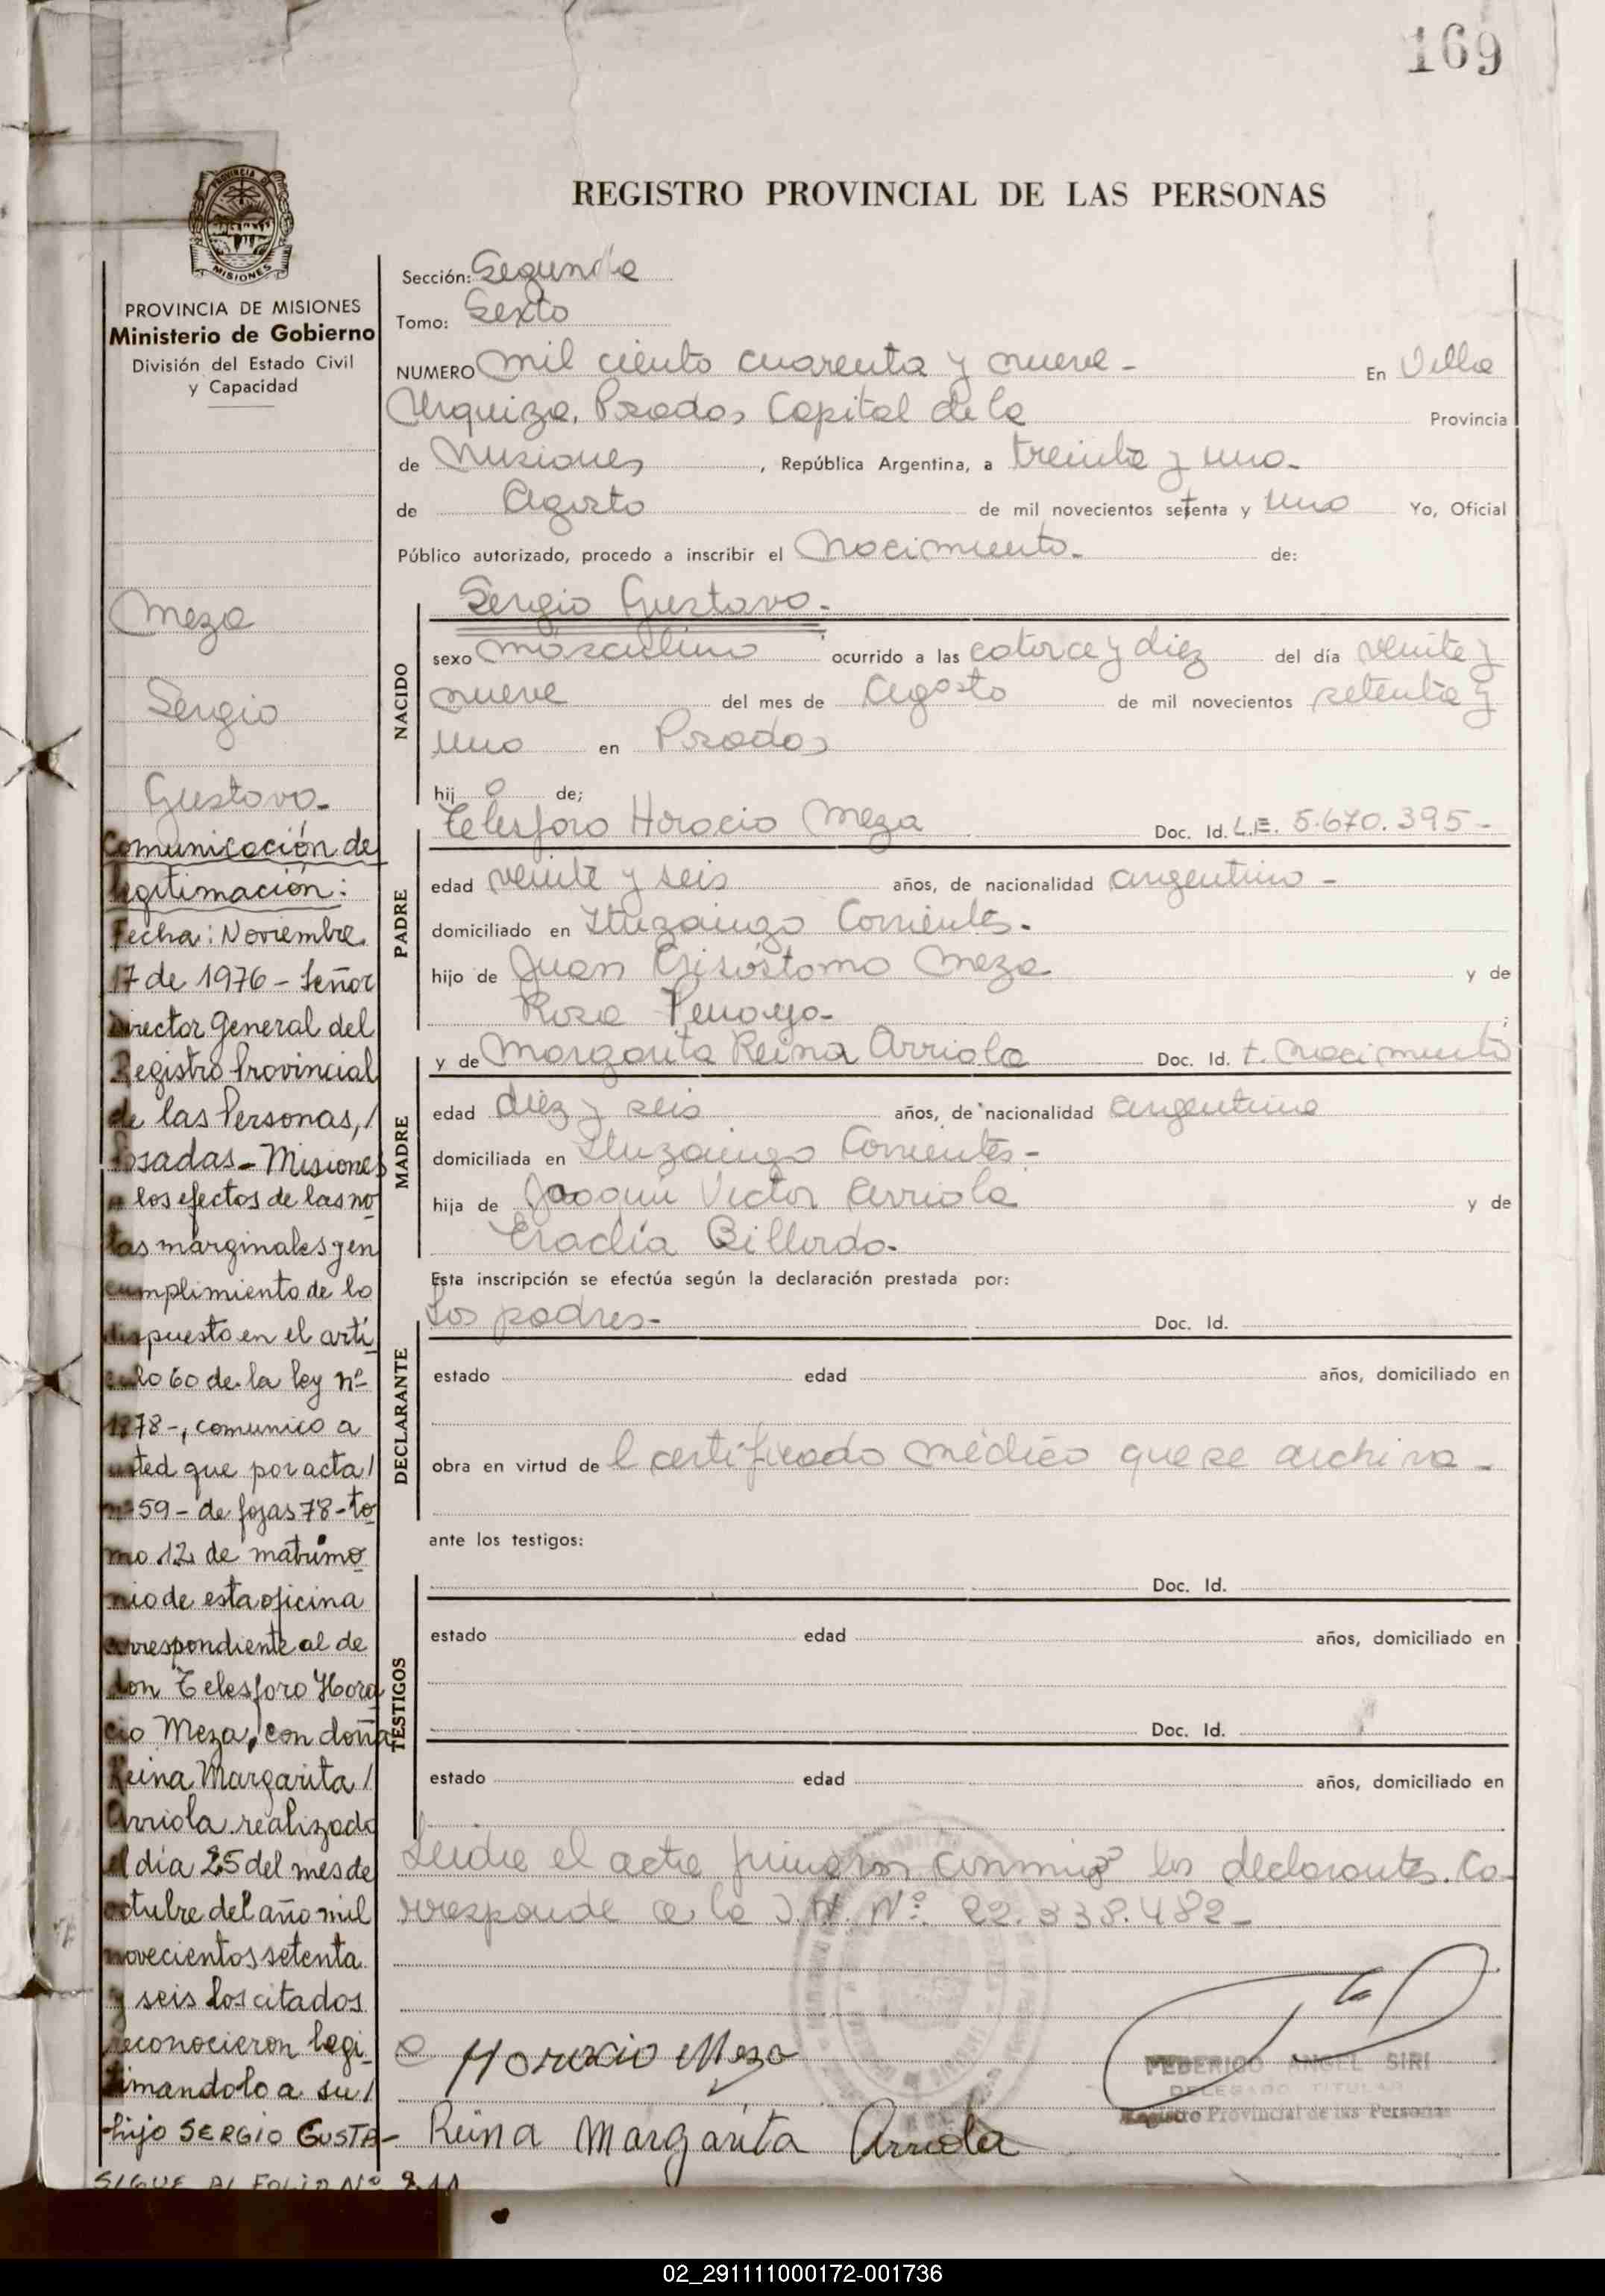 169
REGISTRO PROVINCIAL DE LAS PERSONAS
PROVINCIA DE MISIONES
Ministerio de Gobierno
División del Estado Civil
y Capacidad
Meza
Sergio
Gustavo.
Comunicación de
legitimación:
Fecha: Noviembre
17 de 1976 - Señor
Director General del
Registro Provincial
de las Personas, /
Posadas - Misiones
a los efectos de las no
tas marginales y en
cumplimiento de lo
dispuesto en el artí
culo 60 de la ley nº
1878-, comunico a
usted que por acta /
nº 59 - de fojas 78 - to
mo 12 de matrimo
nio de esta oficina
correspondiente al de
don Telesforo Hora
cio Meza, con doña
Reina Margarita /
Arriola realizado
el día 25 del mes de
octubre del año mil
novecientos setenta
y seis los citados
reconocieron legi
timandolo a su /
hijo SERGIO GUSTA-
SIGUE AL FOLIO Nº 211
Sección: Segunda
Tomo: Sexto
NUMERO mil ciento cuarenta y nueve - En Villa
Urquiza, Posadas Capital de la Provincia
de Misiones, República Argentina, a treinta y uno.
de Agosto de mil novecientos setenta y uno Yo, Oficial
Público autorizado, procedo a inscribir el Nacimiento. de:
NACIDO
Sergio Gustavo.
sexo masculino ocurrido a las catorce y diez del día veinte y
nueve del mes de Agosto de mil novecientos setenta y
uno en Posadas
hij o de;
PADRE
Telesforo Horacio Meza Doc. Id. L.E. 5.670.395-
edad veinte y seis años, de nacionalidad argentino -
domiciliado en Ituzaingo Corrientes.
hijo de Juan Crisóstomo Meza y de
Rosa ;
MADRE
y de Margarita Reina Arriola Doc. Id. t. nacimiento
edad diez y seis años, de nacionalidad argentina
domiciliada en Ituzaingo Corrientes -
hija de Joaquin Victor Arriola y de
Eladia Billordo.
Esta inscripción se efectúa según la declaración prestada por:
DECLARANTE
Los padres- Doc. Id.
estado edad años, domiciliado en
obra en virtud de l certificado médico que se archiva -
ante los testigos:
TESTIGOS
Doc. Id.
estado edad años, domiciliado en
Doc. Id.
estado edad años, domiciliado en
Leida el acta firmaron conmigo los declarantes. Co-
rresponde a la D.N. Nº. 22.338.482-
Horacio Meza
FEDERICO ANGEL SIRI
DELEGADO TITULAR
Registro Provincial de las Personas
Reina Margarita Arriola
02_291111000172-001736